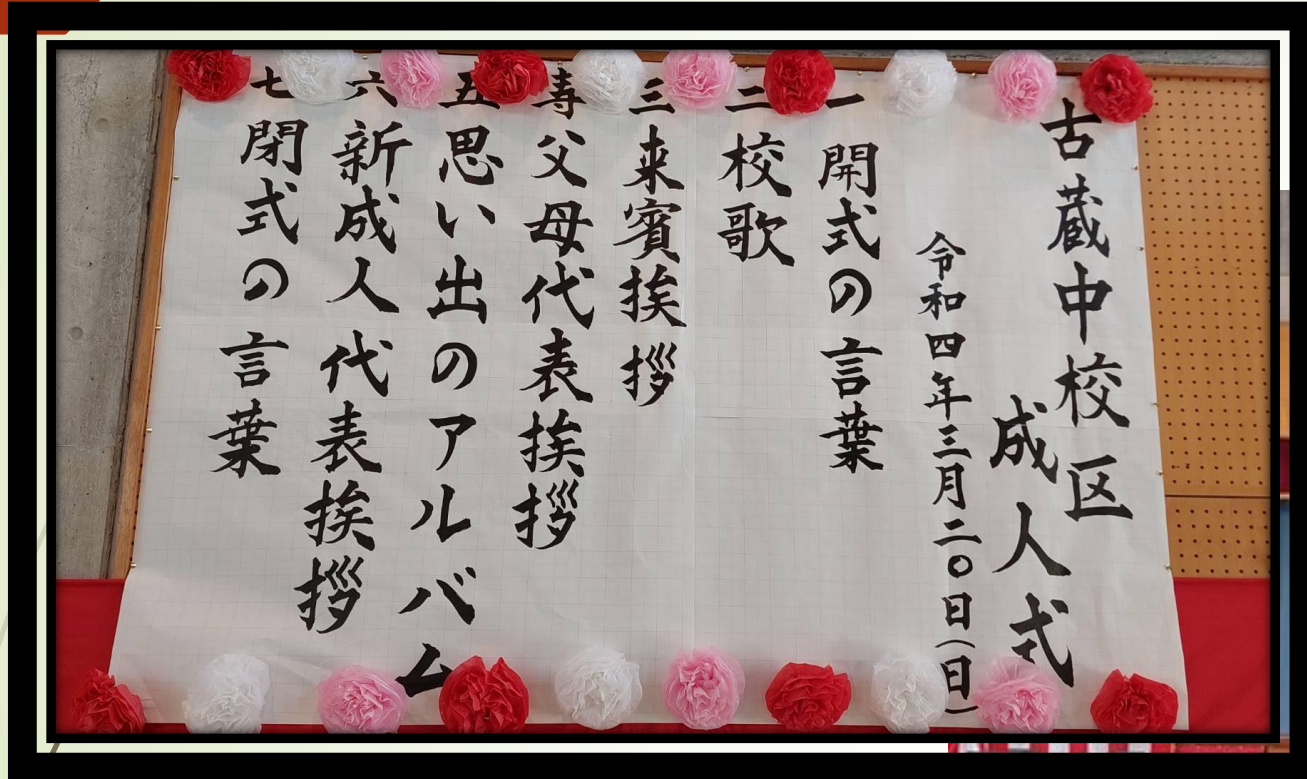 古蔵中校区
成人式
令和四年三月二〇日(日)
一 開式の言葉
二 校歌
三 来賓挨拶
寿 父母代表挨拶
五 思い出のアルバム
六 新成人代表挨拶
七 閉式の言葉